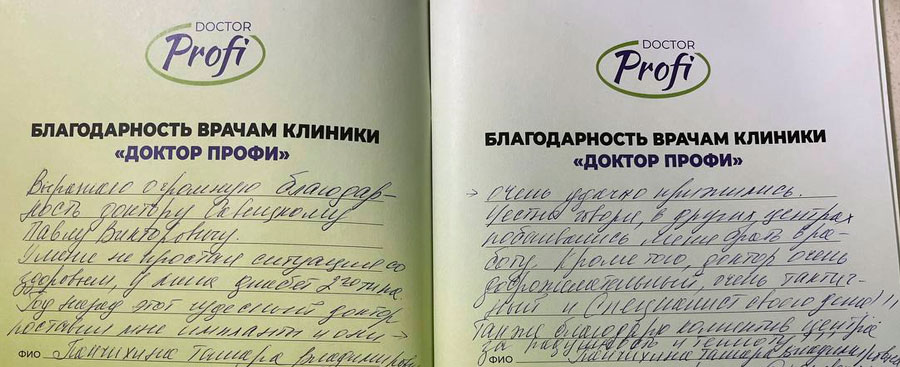 DOCTOR
Profi
БЛАГОДАРНОСТЬ ВРАЧАМ КЛИНИКИ
«ДОКТОР ПРОФИ»
Выражаю огромную благодар-
ность доктору
Павлу Викторовичу.
У меня не простая ситуация со
здоровьем, у меня диабет 2го типа.
Год назад этот чудесный доктор
поставил мне импланты и они →
ФИО Пантихина Тамара Владимировна
DOCTOR
Profi
БЛАГОДАРНОСТЬ ВРАЧАМ КЛИНИКИ
«ДОКТОР ПРОФИ»
→ очень удачно прижились.
Честно говоря, в других центрах
побаивались меня брать в ра-
боту. Кроме того, доктор очень
доброжелательный, очень тактич-
ный и специалист своего дела!!!
Также благодарю коллектив центра
за радушность и теплоту
ФИО Пантихина Тамара Владимировна